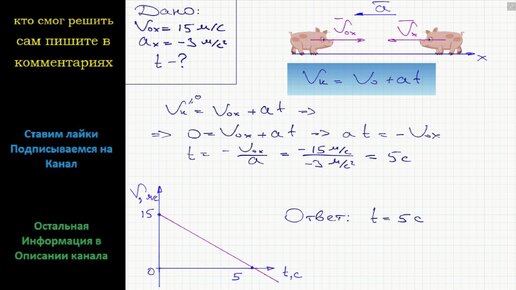 кто смог решить
сам пишите в
комментариях
Ставим лайки
Подписываемся на
Канал
Остальная
Информация в
Описании канала
Дано:
V₀ₓ = 15 м/с
aₓ = -3 м/с²
t - ?
a
V₀ₓ
Vₓ
x
Vₖ = V₀ + at
0
Vₖ = V₀ₓ + at =>
=> 0 = V₀ₓ + at => at = - V₀ₓ
t = - V₀ₓ/a = -15 м/с / -3 м/с² = 5 с
V, м/с
15
0
5
t, с
Ответ: t = 5 с